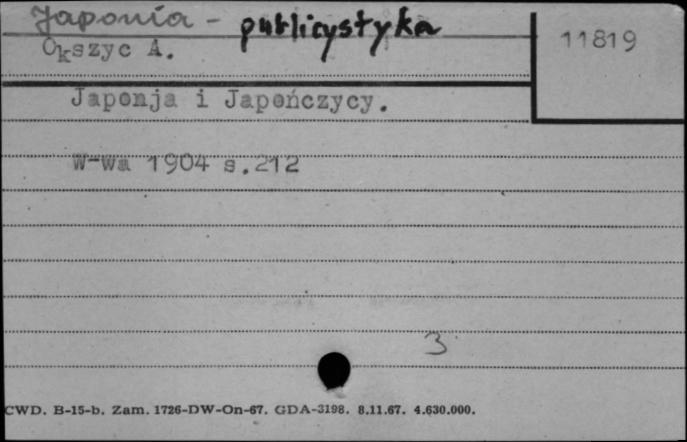 Japonia - publicystyka
Okszyc A.
11819
Japonja i Japończycy.
W-wa 1904 s.212
3
CWD. B-15-b. Zam. 1726-DW-On-67. GDA-3198. 8.11.67. 4.630.000.